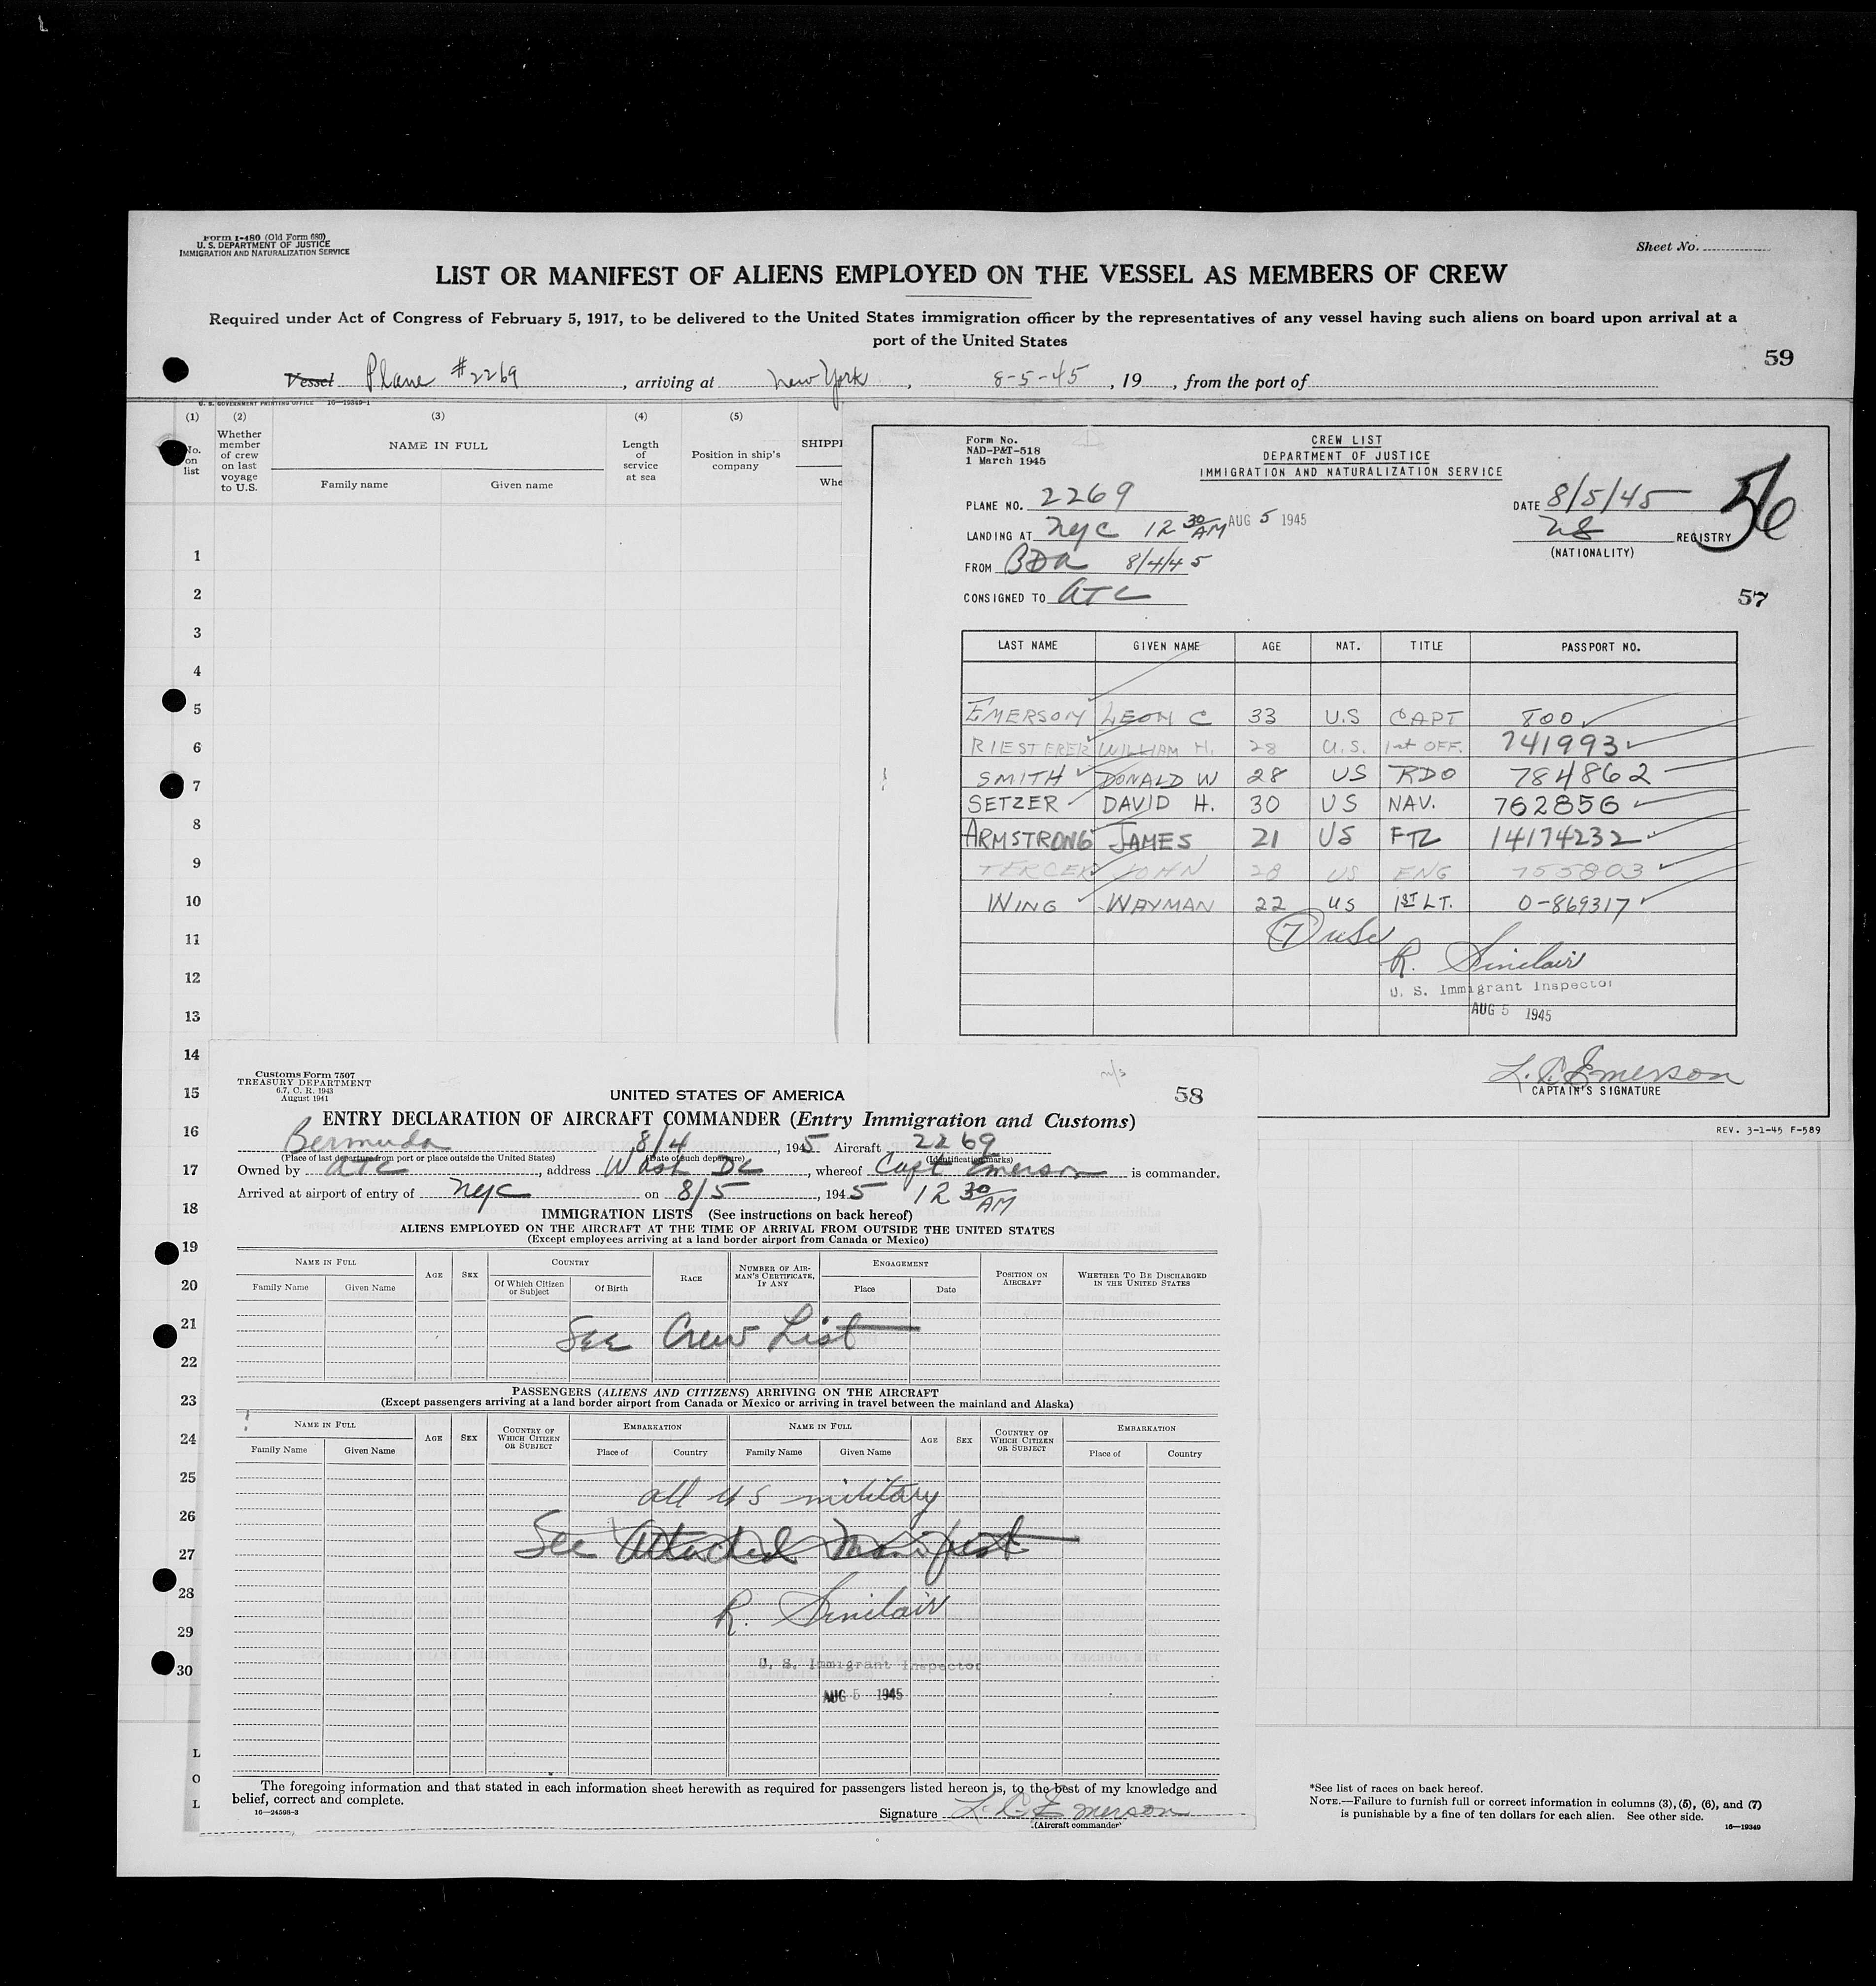 Form I-480 (Old Form 680)
U. S. DEPARTMENT OF JUSTICE
IMMIGRATION AND NATURALIZATION SERVICE
Sheet No.
LIST OR MANIFEST OF ALIENS EMPLOYED ON THE VESSEL AS MEMBERS OF CREW
Required under Act of Congress of February 5, 1917, to be delivered to the United States immigration officer by the representatives of any vessel having such aliens on board upon arrival at a
port of the United States
59
Vessel Plane #2269, arriving at New York, 8-5-45, 19 , from the port of
U. S. GOVERNMENT PRINTING OFFICE 16—19349-1
(1) (2) (3) (4) (5)
No. on list
Whether member of crew on last voyage to U.S.
NAME IN FULL
Family name Given name
Length of service at sea
Position in ship's company
SHIPPI
Whe
1
2
3
4
5
6
7
8
9
10
11
12
13
14
15
16
17
18
19
20
21
22
23
24
25
26
27
28
29
30
L
O
L
Form No.
NAD-P&T-518
1 March 1945
CREW LIST
DEPARTMENT OF JUSTICE
IMMIGRATION AND NATURALIZATION SERVICE
56
PLANE NO. 2269
DATE 8/5/45
LANDING AT NYC 12 30 AM AUG 5 1945
US REGISTRY
(NATIONALITY)
FROM BDA 8/4/45
CONSIGNED TO ATC
57
LAST NAME GIVEN NAME AGE NAT. TITLE PASSPORT NO.
EMERSON LEON C 33 U.S CAPT 800
RIESTERER WILLIAM H. 28 U.S. 1st OFF. 741993
SMITH DONALD W 28 US RDO 784862
SETZER DAVID H. 30 US NAV. 762856
ARMSTRONG JAMES 21 US FTC 14174232
TERCEK JOHN 28 US ENG 755803
WING WAYMAN 22 US 1ST LT. 0-869317
7 USC
R. Sinclair
U. S. Immigrant Inspector
AUG 5 1945
L. C. Emerson
CAPTAIN'S SIGNATURE
REV. 3-1-45 F-589
Customs Form 7507
TREASURY DEPARTMENT
6.7, C. R. 1943
August 1941
n/s
58
UNITED STATES OF AMERICA
ENTRY DECLARATION OF AIRCRAFT COMMANDER (Entry Immigration and Customs)
Bermuda 8/4, 1945 Aircraft 2269
(Place of last departure from port or place outside the United States) (Date of such departure) (Identification marks)
Owned by ATC, address Wash DC, whereof Capt Emerson is commander.
Arrived at airport of entry of NYC on 8/5, 1945 12 30 AM
IMMIGRATION LISTS (See instructions on back hereof)
ALIENS EMPLOYED ON THE AIRCRAFT AT THE TIME OF ARRIVAL FROM OUTSIDE THE UNITED STATES
(Except employees arriving at a land border airport from Canada or Mexico)
NAME IN FULL AGE SEX COUNTRY RACE NUMBER OF AIRMAN'S CERTIFICATE, IF ANY ENGAGEMENT POSITION ON AIRCRAFT WHETHER TO BE DISCHARGED IN THE UNITED STATES
Family Name Given Name Of Which Citizen or Subject Of Birth Place Date
See Crew List
PASSENGERS (ALIENS AND CITIZENS) ARRIVING ON THE AIRCRAFT
(Except passengers arriving at a land border airport from Canada or Mexico or arriving in travel between the mainland and Alaska)
NAME IN FULL AGE SEX COUNTRY OF WHICH CITIZEN OR SUBJECT EMBARKATION NAME IN FULL AGE SEX COUNTRY OF WHICH CITIZEN OR SUBJECT EMBARKATION
Family Name Given Name Place of Country Family Name Given Name Place of Country
all US military
See Attached Manifest
R. Sinclair
U. S. Immigrant Inspector
AUG 5 1945
The foregoing information and that stated in each information sheet herewith as required for passengers listed hereon is, to the best of my knowledge and
belief, correct and complete.
16—24598-3
Signature L. C. Emerson
(Aircraft commander)
*See list of races on back hereof.
NOTE.—Failure to furnish full or correct information in columns (3), (5), (6), and (7)
is punishable by a fine of ten dollars for each alien. See other side.
16—19349